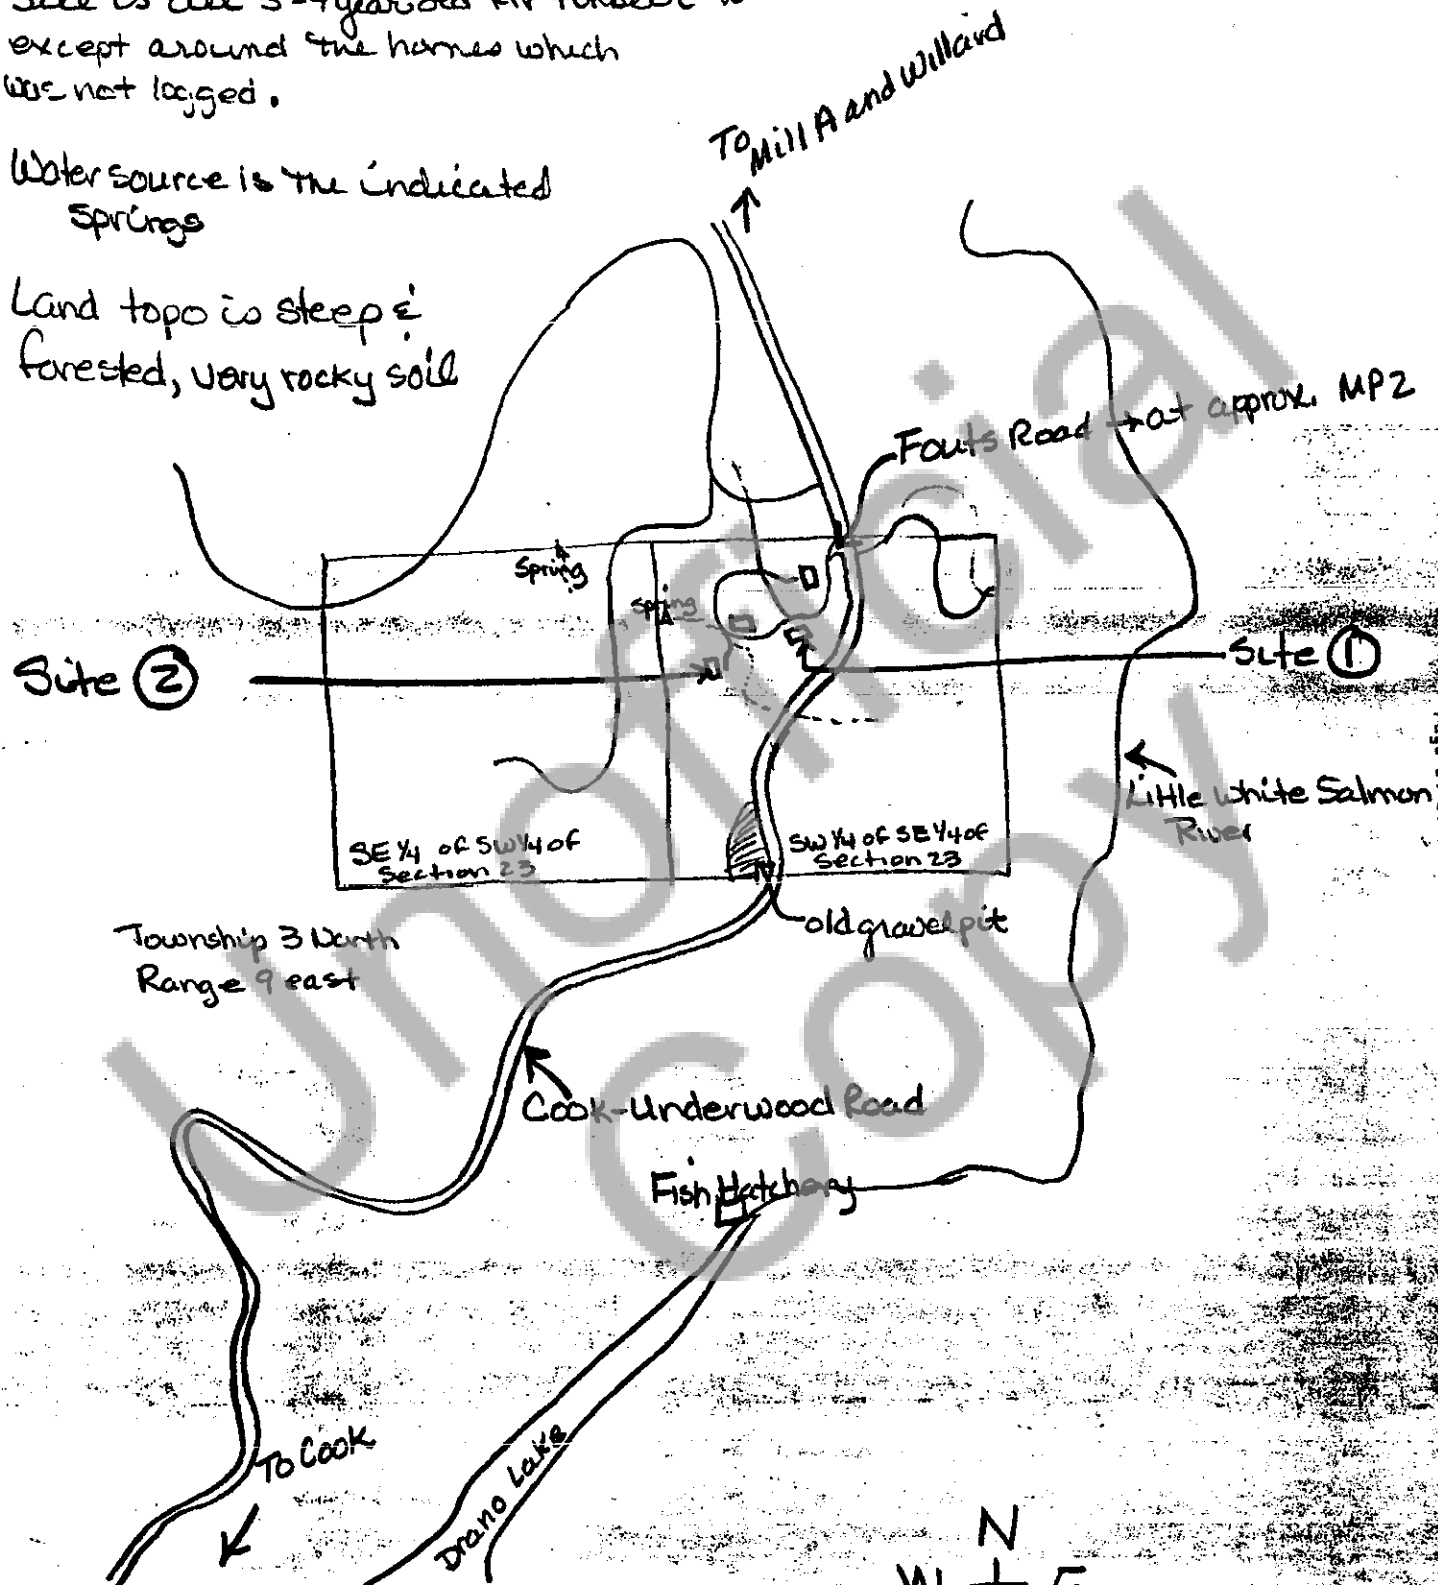 except around the homes which
was not logged.
Water source is the indicated
springs
Land topo is steep &
forested, very rocky soil
To Mill A and Willard
Fouts Road → at approx. MP2
Spring
Spring
Site ②
Site ①
SE 1/4 of SW 1/4 of
Section 23
SW 1/4 of SE 1/4 of
Section 23
Little White Salmon
River
Township 3 North
Range 9 east
old gravel pit
Cook-Underwood Road
Fish Hatchery
To Cook
Drano Lake
N
W E
Unofficial
Copy